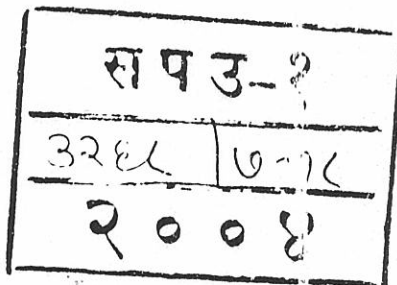 हा प उ-१
३२६८ ७-१८
२००४